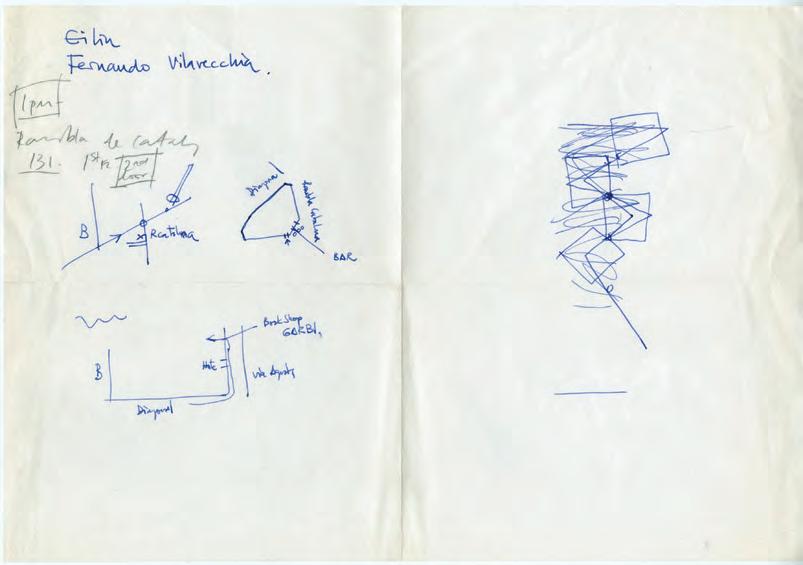 Eilin
Fernando Vilavecchià.
1 pm
Rambla de Cataly
131. 1st Fl 2nd
Door
B
R Cataluna
Diagonal
Rambla Cataluna
BAR
Book Shop
B
Hote
Via Agusta
Diagonal